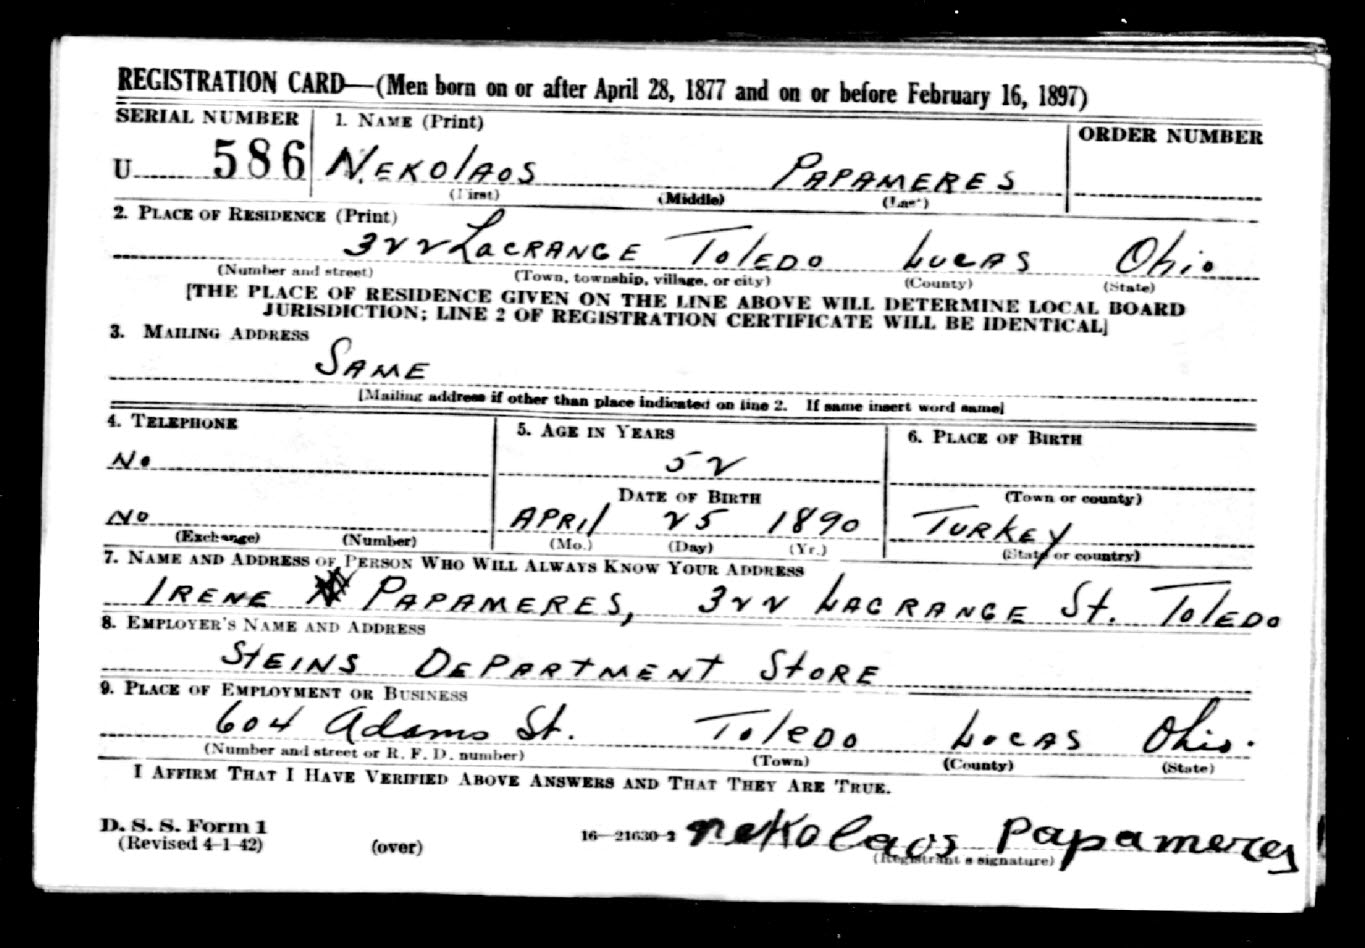 REGISTRATION CARD—(Men born on or after April 28, 1877 and on or before February 16, 1897)
SERIAL NUMBER 1. NAME (Print) ORDER NUMBER
U 586 NEKOLAOS PAPAMERES
(First) (Middle) (Last)
2. PLACE OF RESIDENCE (Print)
322 LAGRANGE TOLEDO LUCAS Ohio
(Number and street) (Town, township, village, or city) (County) (State)
[THE PLACE OF RESIDENCE GIVEN ON THE LINE ABOVE WILL DETERMINE LOCAL BOARD
JURISDICTION; LINE 2 OF REGISTRATION CERTIFICATE WILL BE IDENTICAL]
3. MAILING ADDRESS
SAME
[Mailing address if other than place indicated on line 2. If same insert word same]
4. TELEPHONE 5. AGE IN YEARS 6. PLACE OF BIRTH
No 52
DATE OF BIRTH (Town or county)
No APRIL 25 1890 TURKEY
(Exchange) (Number) (Mo.) (Day) (Yr.) (State or country)
7. NAME AND ADDRESS OF PERSON WHO WILL ALWAYS KNOW YOUR ADDRESS
IRENE PAPAMERES, 322 LAGRANGE St. TOLEDO
8. EMPLOYER'S NAME AND ADDRESS
STEINS DEPARTMENT STORE
9. PLACE OF EMPLOYMENT OR BUSINESS
604 Adams St. TOLEDO LUCAS Ohio.
(Number and street or R. F. D. number) (Town) (County) (State)
I AFFIRM THAT I HAVE VERIFIED ABOVE ANSWERS AND THAT THEY ARE TRUE.
D. S. S. Form 1
(Revised 4-1-42) (over) 16—21630-2 nekolaos Papameres
(Registrant's signature)